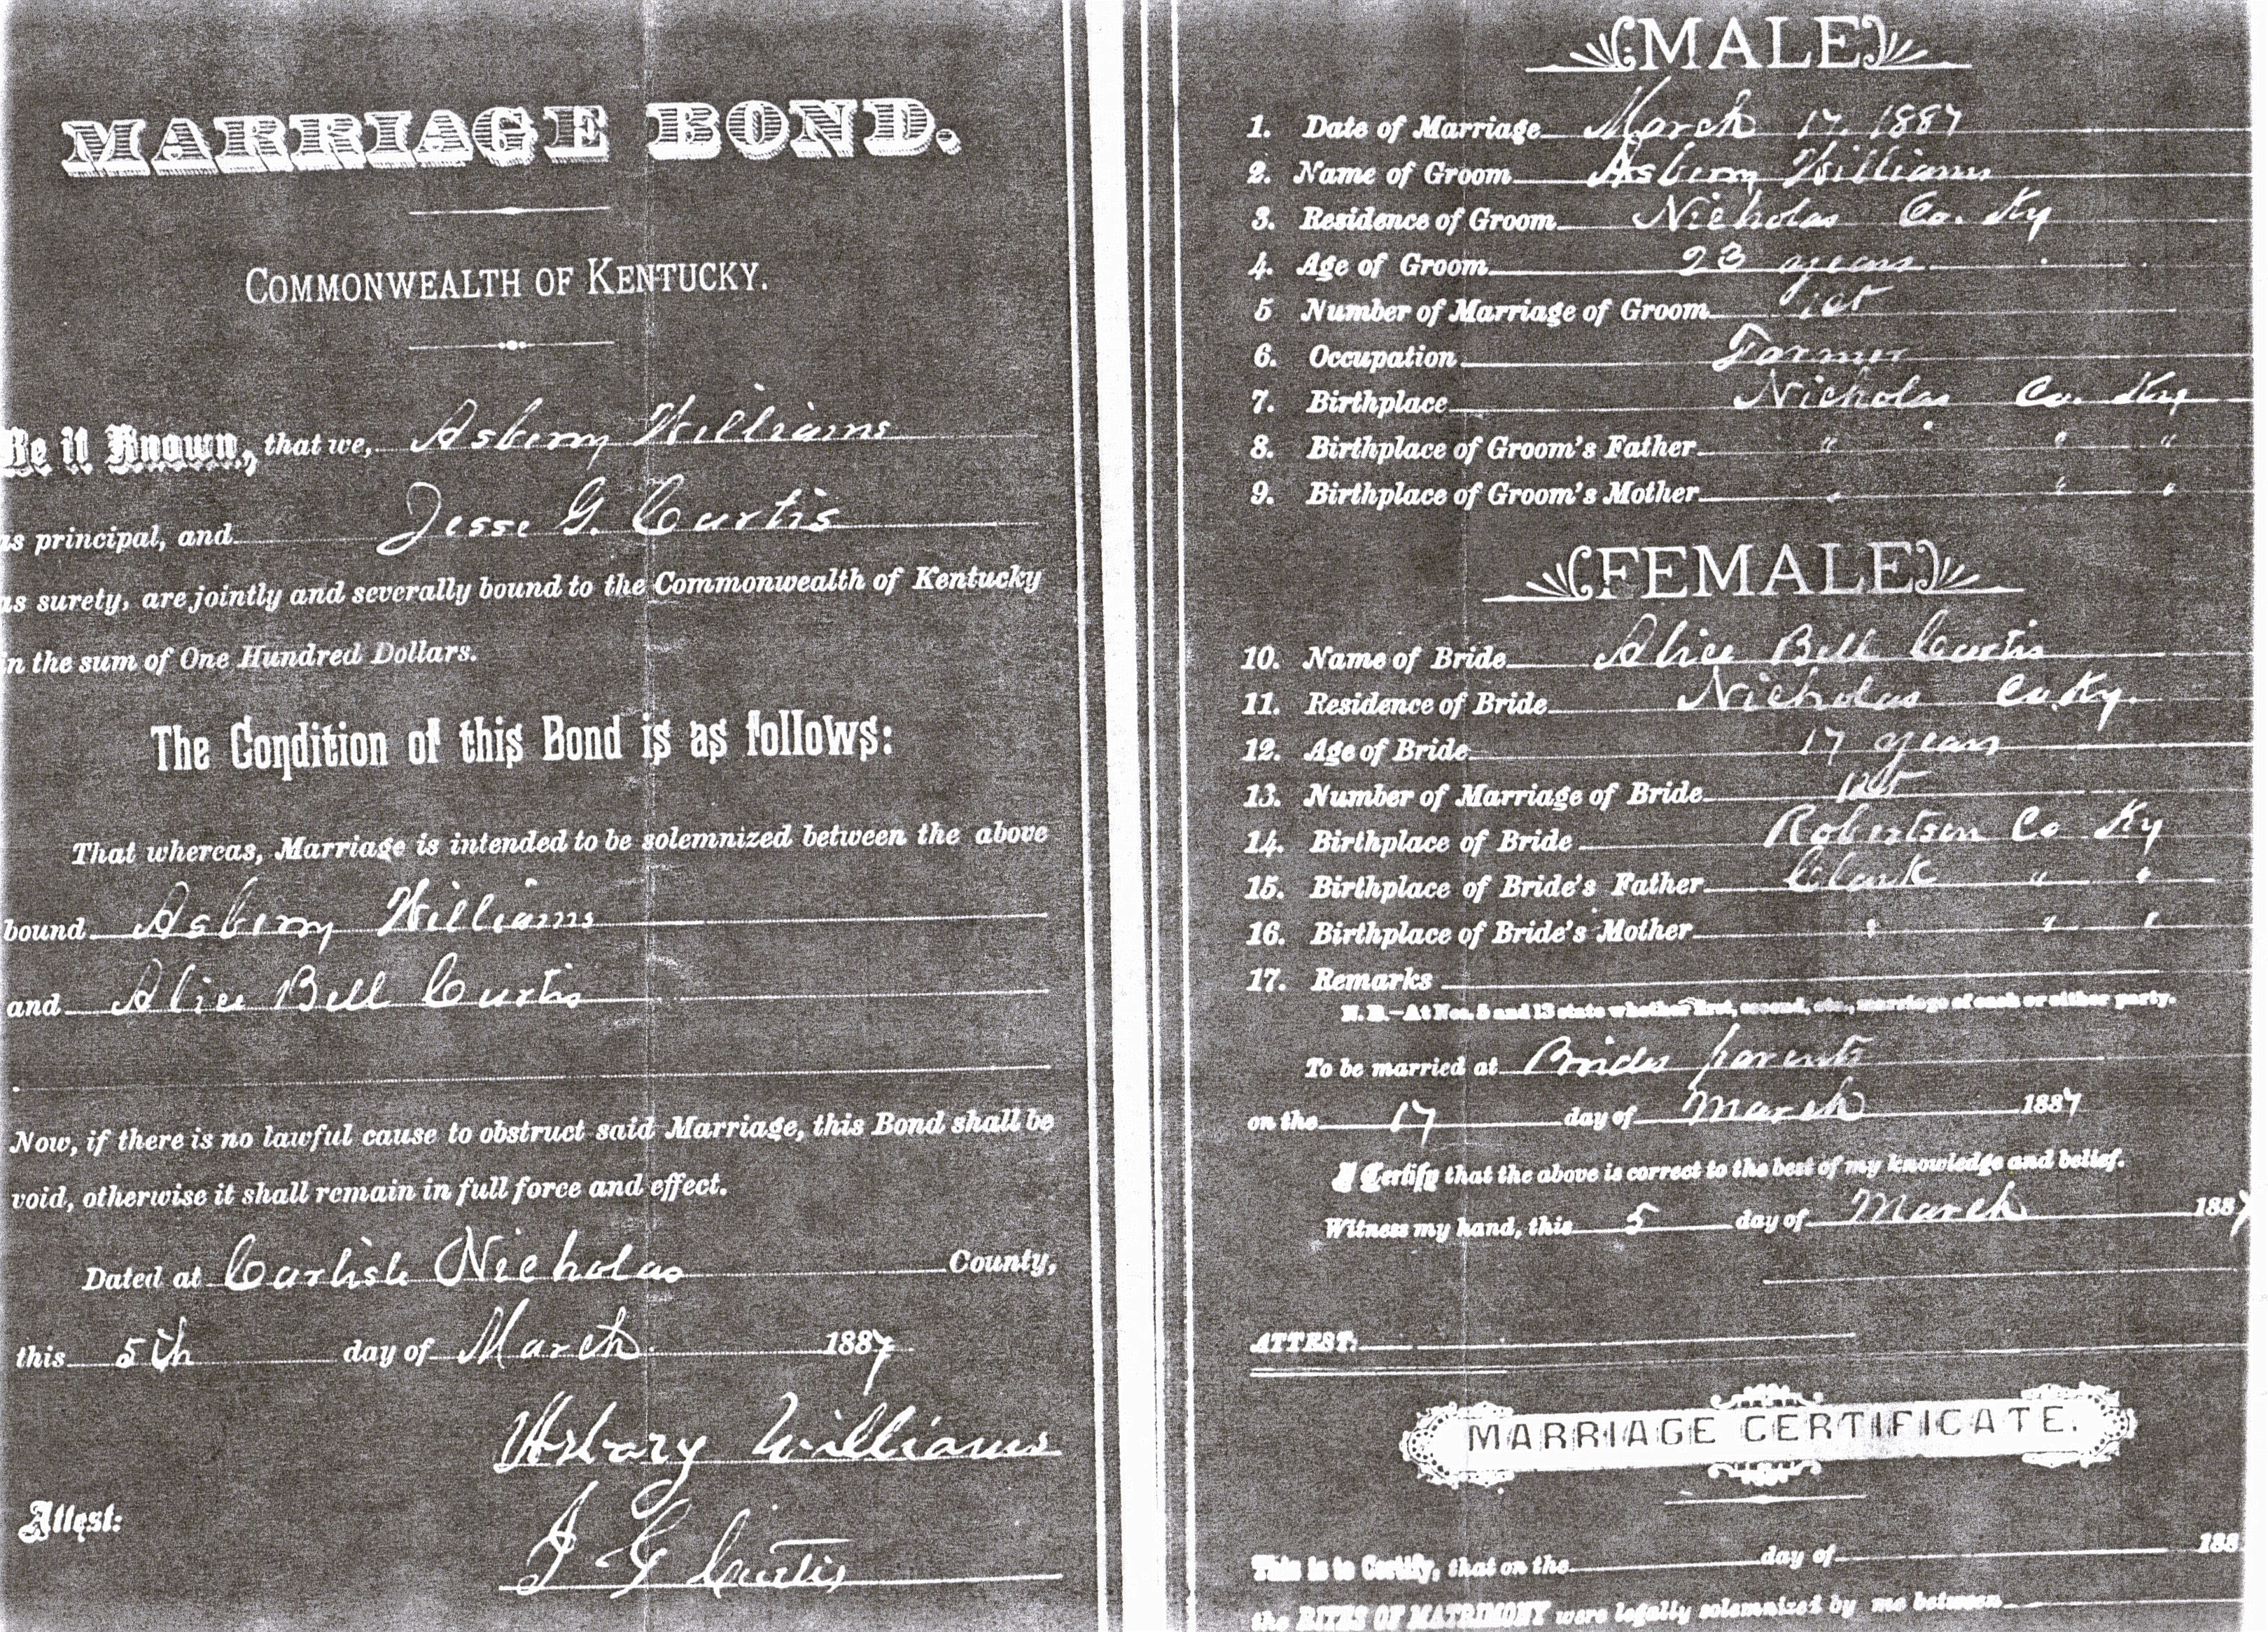 MARRIAGE BOND.
COMMONWEALTH OF KENTUCKY.
Be it Known, that we, Asberry Williams
as principal, and Jesse G. Curtis
as surety, are jointly and severally bound to the Commonwealth of Kentucky
in the sum of One Hundred Dollars.
The Condition of this Bond is as follows:
That whereas, Marriage is intended to be solemnized between the above
bound Asberry Williams
and Alice Bell Curtis
Now, if there is no lawful cause to obstruct said Marriage, this Bond shall be
void, otherwise it shall remain in full force and effect.
Dated at Carlisle Nicholas County,
this 5th day of March 1887
Asbary Williams
Attest:
J G Curtis
MALE
1. Date of Marriage March 17. 1887
2. Name of Groom Asberry Williams
3. Residence of Groom Nicholas Co. Ky
4. Age of Groom 23 years
5 Number of Marriage of Groom 1st
6. Occupation Farmer
7. Birthplace Nicholas Co. Ky
8. Birthplace of Groom's Father " " "
9. Birthplace of Groom's Mother " " "
FEMALE
10. Name of Bride Alice Bell Curtis
11. Residence of Bride Nicholas Co. Ky.
12. Age of Bride 17 years
13. Number of Marriage of Bride 1st
14. Birthplace of Bride Robertson Co Ky
15. Birthplace of Bride's Father Clark " "
16. Birthplace of Bride's Mother " " "
17. Remarks
N. B.—At Nos. 5 and 13 state whether first, second, etc., marriage of each or either party.
To be married at Brides parents
on the 17 day of March 1887
I Certify that the above is correct to the best of my knowledge and belief.
Witness my hand, this 5 day of March 1887
ATTEST:
MARRIAGE CERTIFICATE.
This is to Certify, that on the day of 188
the RITES OF MATRIMONY were legally solemnized by me between